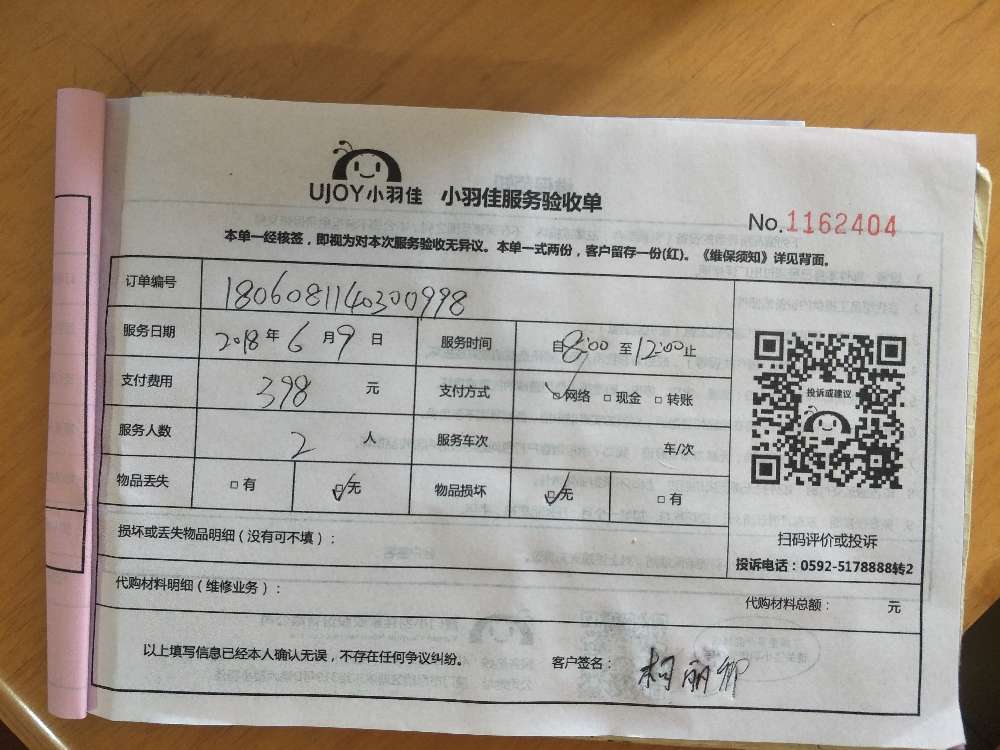 UJOY小羽佳 小羽佳服务验收单
No.1162404
本单一经核签，即视为对本次服务验收无异议。本单一式两份，客户留存一份(红)。《维保须知》详见背面。
订单编号 1806081140300998
服务日期 2018年6月9日 服务时间 自8:00至12:00止
支付费用 398元 支付方式 网络 现金 转账
投诉或建议
服务人数 2人 服务车次 车/次
物品丢失 有 无 物品损坏 无 有
损坏或丢失物品明细（没有可不填）：
扫码评价或投诉
投诉电话：0592-5178888转2
代购材料明细（维修业务）：
代购材料总额： 元
以上填写信息已经本人确认无误，不存在任何争议纠纷。 客户签名：柯丽卿